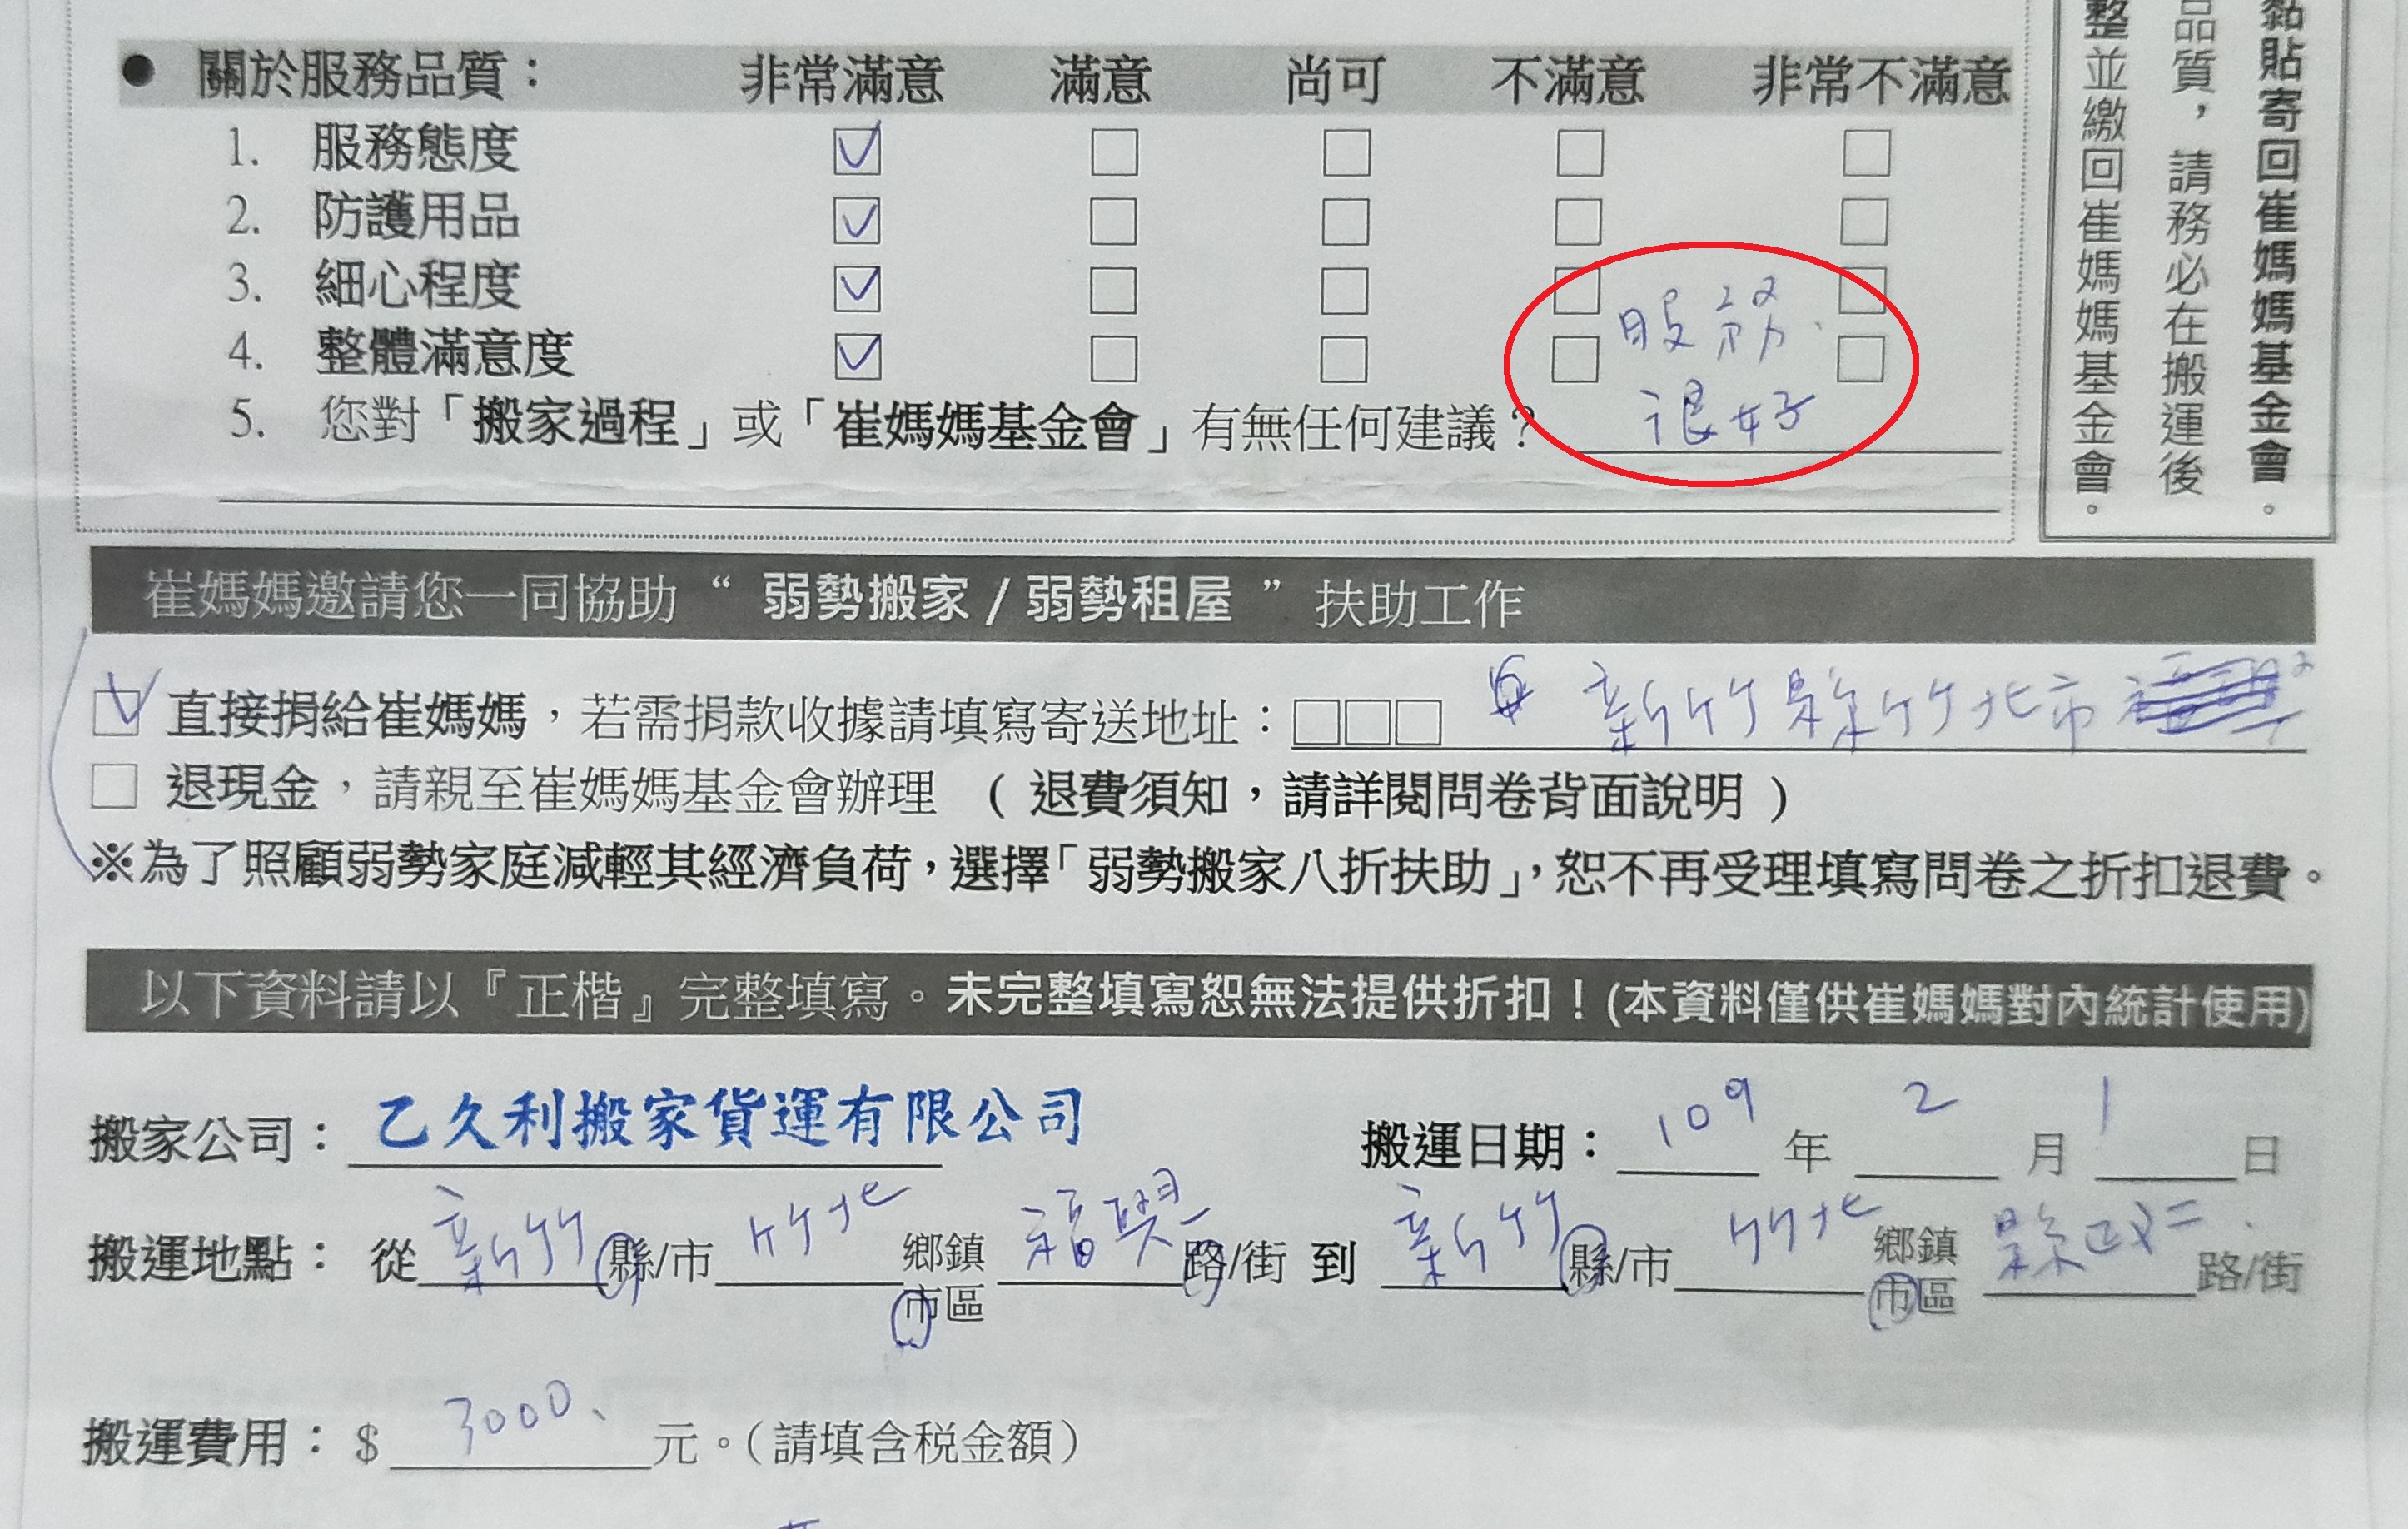 ● 關於服務品質： 非常滿意 滿意 尚可 不滿意 非常不滿意
1. 服務態度
2. 防護用品
3. 細心程度
4. 整體滿意度
服務
很好
5. 您對「搬家過程」或「崔媽媽基金會」有無任何建議？
黏貼寄回崔媽媽基金會。
品質，請務必在搬運後
整並繳回崔媽媽基金會。
崔媽媽邀請您一同協助“弱勢搬家/弱勢租屋”扶助工作
直接捐給崔媽媽，若需捐款收據請填寫寄送地址：□□□ 新竹縣竹北市
□ 退現金，請親至崔媽媽基金會辦理 (退費須知，請詳閱問卷背面說明)
※為了照顧弱勢家庭減輕其經濟負荷，選擇「弱勢搬家八折扶助」，恕不再受理填寫問卷之折扣退費。
以下資料請以『正楷』完整填寫。未完整填寫恕無法提供折扣！(本資料僅供崔媽媽對內統計使用)
搬家公司：乙久利搬家貨運有限公司 搬運日期：109年2月1日
搬運地點：從新竹縣/市竹北鄉鎮市區福興路/街到新竹縣/市竹北鄉鎮市區縣政二路/街
搬運費用：$3000、元。(請填含稅金額)